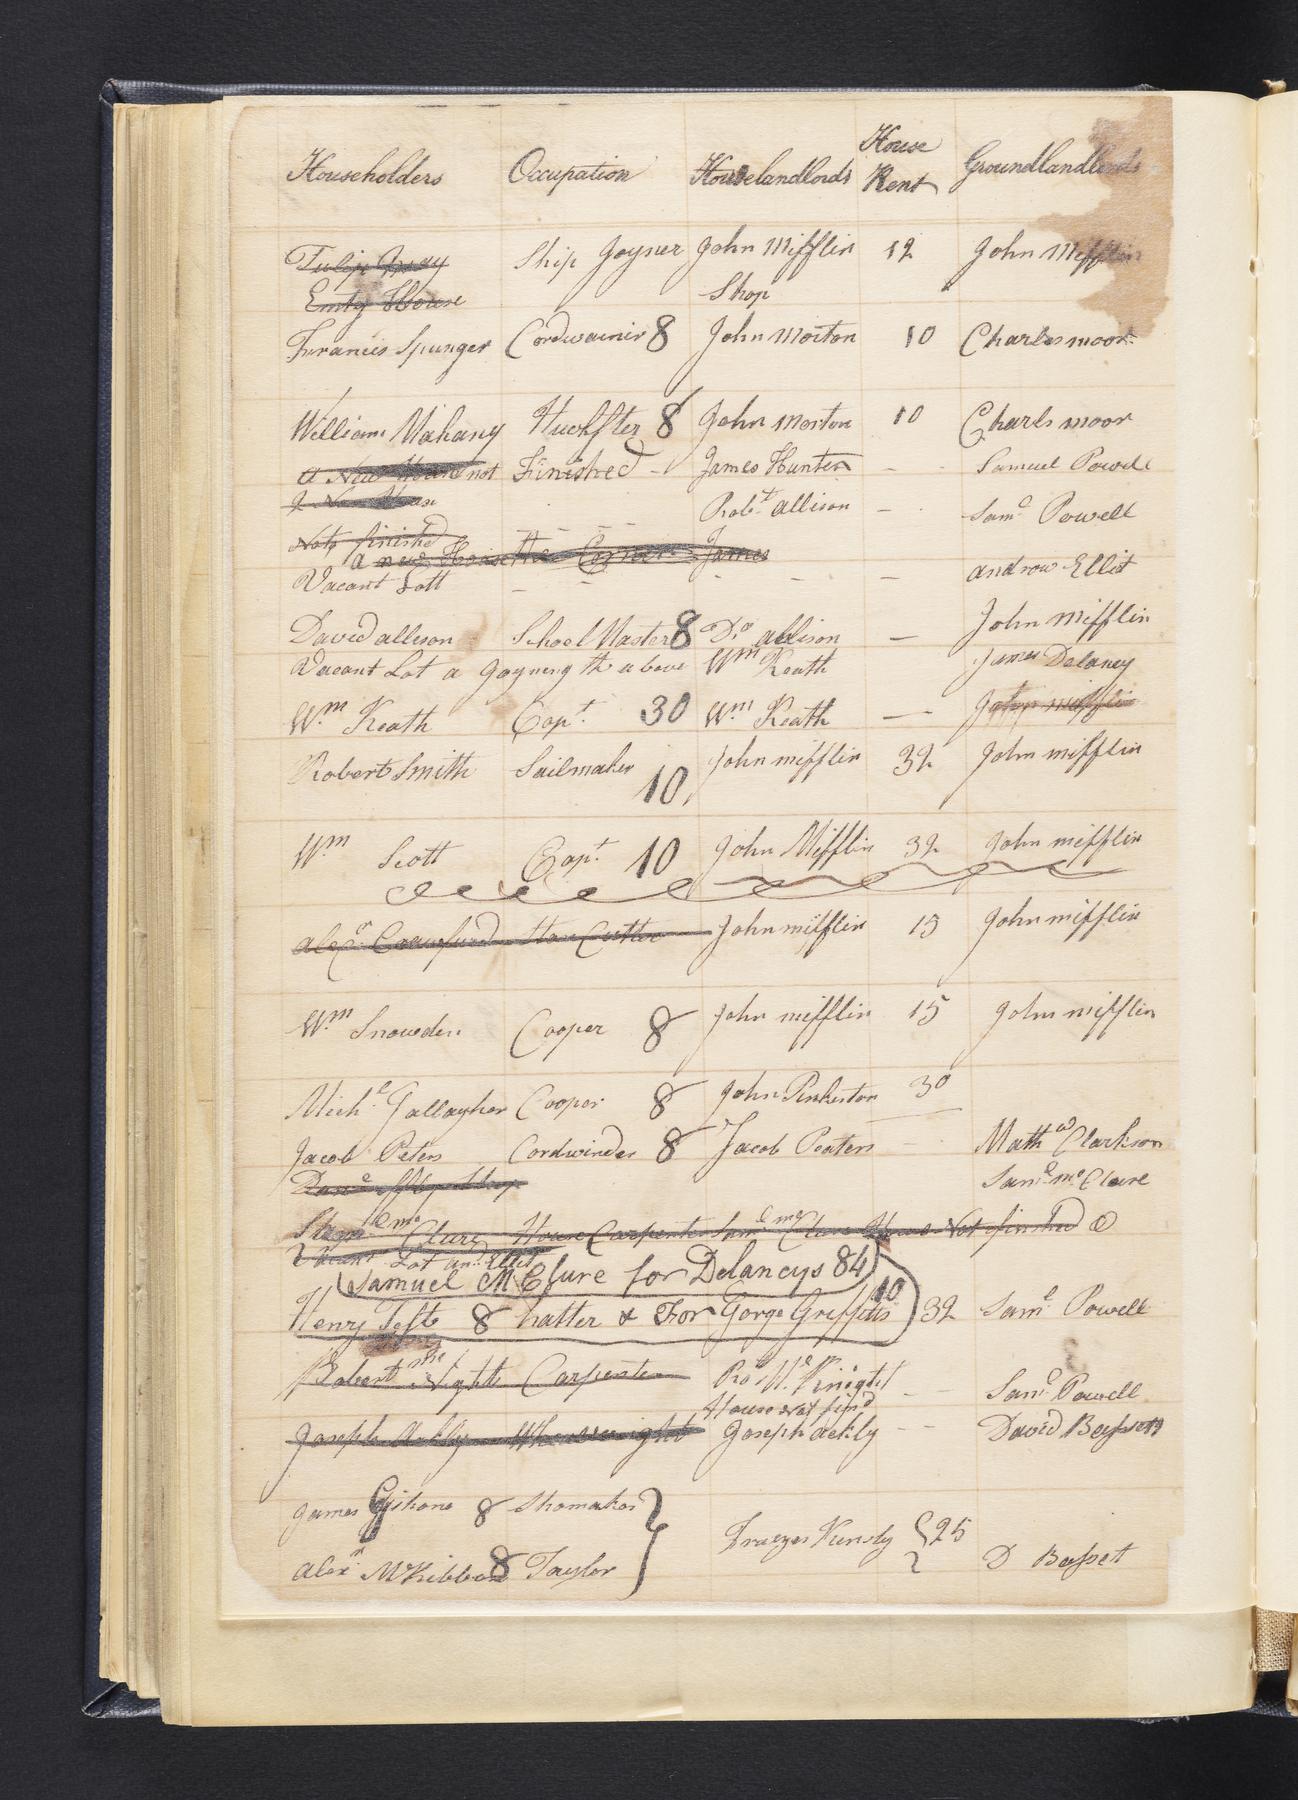 House
Householders Occupation Houselandlords Rent Groundlandlords
Tulip Quay Ship Joyner John Mifflin 12 John Mifflin
Emty House Shop
Francis Spunger Cordwainir 8 John Morton 10 Charles moor
William Mahany Huckster 8 John Morton 10 Charls moor
a New House not Finished - James Hunter - - Samuel Powell
a New House Robt. allison - Saml Powell
Not finished
a new House the Corner James
Vacant Lott - - - - - androw Elliot
David allison School Master 8 Do allison - John Mifflin
Vacant Lot a Joyning the above Wm Keath James Delancy
Wm Keath Capt. 30 Wm Keath - John mifflin
Robert Smith Sailmaker 10 John mifflin 32 John mifflin
Wm Scott Capt 10 John Mifflin 32 John mifflin
alexr Crawfurd Cutter John mifflin 15 John mifflin
Wm Snowden Cooper 8 John mifflin 15 John mifflin
Michl Gallagher Cooper 8 John Pinkerton 30
Jacob Peters Cordwinder 8 Jacob Peaters - Mathw Clarkson
Saml mcClure
mcClure House Carpenter Saml mcClure House Not finished
Vacant Lot an. Elliot
Samuel McClure for Delancys 84
Henry Test 8 hatter & For Gorge Griffitts 10 32 Saml Powell
Robert mcNight Carpenter Robt McKnight - - Saml Powell
House not find
Joseph Ackly Joseph ackly - David Bassett
James 8 Shomaker
25
alexr McKibben 8 Taylor D Bassett